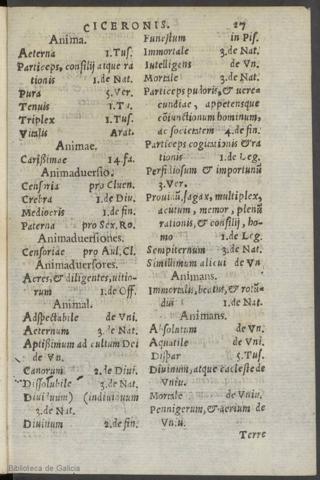 CICERONIS. 27
Anima.
Aeterna 1.Tus.
Particeps, consilij atque ra
tionis 1.de Nat.
Pura 5.Ver.
Tenuis 1.Tu.
Triplex 1.Tus.
Vitalis Arat.
Animae.
Carissimae 14.fa.
Animaduersio.
Censoria pro Cluen.
Crebra 1.de Diu.
Mediocris 1.de fin.
Paterna pro Sex.Ro.
Animaduersiones.
Censoriae pro Aul.Cl.
Animaduersores.
Acres,& diligentes,uitio-
rum 1.de Off.
Animal.
Adspectabile de Vni.
Aeternum 3.de Nat.
Aptissimum ad cultum Dei
de Vn.
Canorum 2.de Diui.
Dissolubile 3.de Nat.
Diuiduum) (indiuiduum
3.de Nat.
Diuinum 2.de fin.
Funestum in Pis.
Immortale 3.de Nat.
Intelligens de Vn.
Mortale 3.de Nat.
Particeps pudoris,& uere
cundiae, appetensque
cõiunctionum hominum,
ac societatem 4.de fin.
Particeps cogitationis & ra
tionis 1.de Leg.
Perfidiosum & importunũ
3.Ver.
Prouidũ,sagax, multiplex,
acutum, memor, plenũ
rationis,& consilij, ho-
mo 1.de Leg.
Sempiternum 3.de Nat.
Simillimum alicui de Vn
Animans.
Immortalis,beatus,& rotũ-
dus 1.de Nat.
Animans.
Absolutum de Vn.
Aquatile de Vni.
Dispar 5.Tus.
Diuinum,atque caeleste de
Vniu.
Mortale de Vniu.
Pennigerum,& aerium de
Vn.u.
Terre
Biblioteca de Galicia